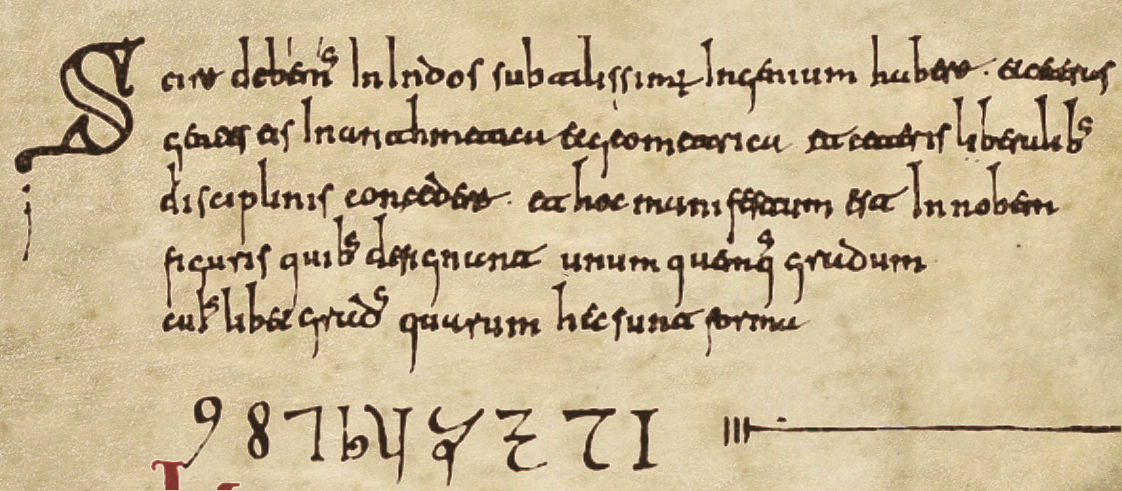 Scire debem⁹ In Indos subtilissimum Ingenium habere · et ceteras
gentes eis In arithmetica et geometrica et ceteris liberalibˢ
disciplinis concedere · et hoc manifestum est In nobem
figuris quibˢ designant unum quemqˢ gradum
cuiˢlibet gradˢ quarum hec sunt forma
9 8 7 6 5 4 3 2 1